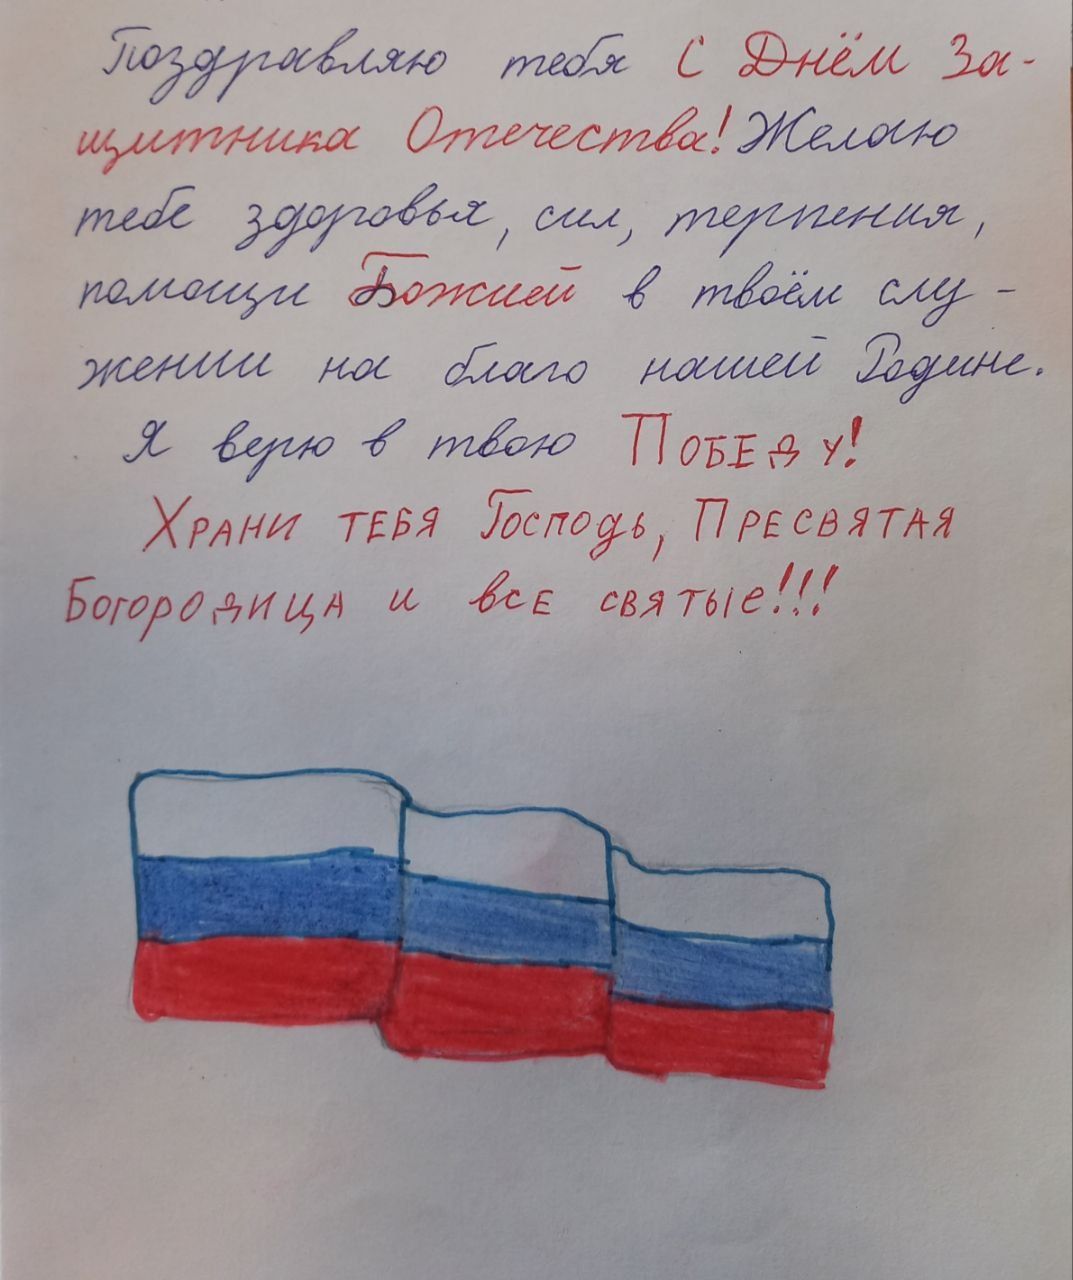 Поздравляю тебя с Днём За-
щитника Отечества! Желаю
тебе здоровья, сил, терпения,
помощи Божией в твоём слу-
жении на благо нашей Родине.
Я верю в твою Победу!
Храни тебя Господь, Пресвятая
Богородица и все святые!!!